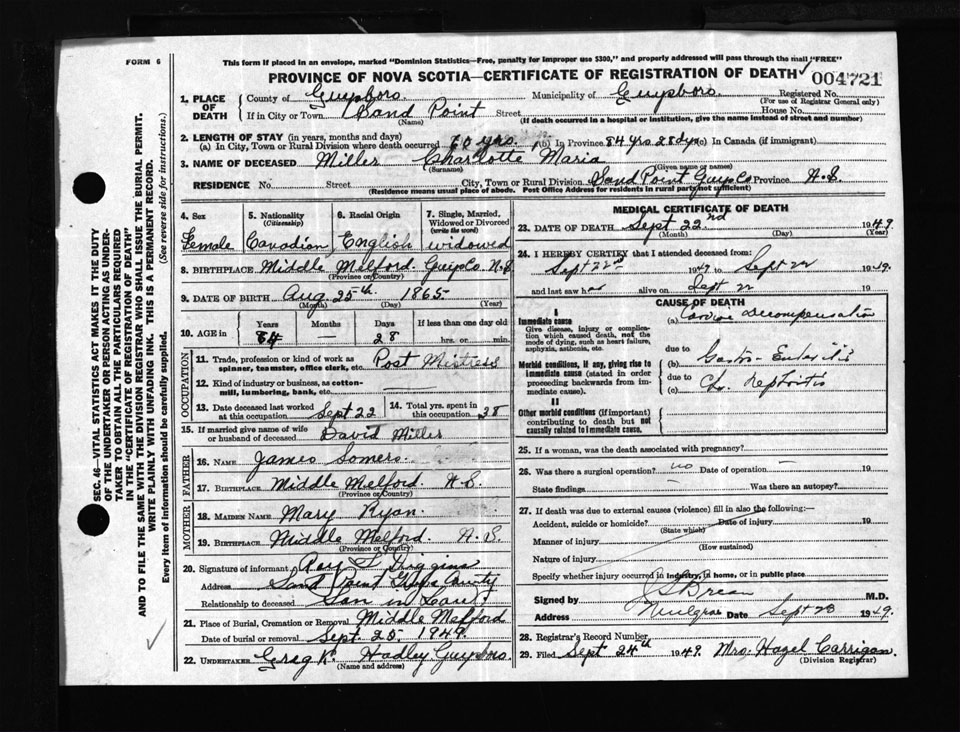 FORM 6
This form if placed in an envelope, marked "Dominion Statistics—Free, penalty for improper use $300," and properly addressed will pass through the mail "FREE"
PROVINCE OF NOVA SCOTIA—CERTIFICATE OF REGISTRATION OF DEATH ✓ 004721
1. PLACE OF DEATH
County of Guysboro Municipality of Guysboro Registered No.
(For use of Registrar General only)
If in City or Town Sand Point Street House No.
(Name) (If death occurred in a hospital or institution, give the name instead of street and number)
2. LENGTH OF STAY (in years, months and days)
(a) In City, Town or Rural Division where death occurred 60 yrs. (b) In Province 84 yrs 28 dys (c) In Canada (if immigrant)
3. NAME OF DECEASED Miller Charlotte Maria
(Surname) (Given name or names)
RESIDENCE No. Street City, Town or Rural Division Sand Point Guys Co Province N.S.
(Residence means usual place of abode. Post Office Address for residents in rural parts not sufficient)
4. Sex Female
5. Nationality (Citizenship) Canadian
6. Racial Origin English
7. Single, Married, Widowed or Divorced (write the word) widowed
8. BIRTHPLACE Middle Melford. Guys Co N.S
(Province or Country)
9. DATE OF BIRTH Aug 25th 1865
(Month) (Day) (Year)
10. AGE in Years Months Days If less than one day old
84 — 28 hrs. or min.
OCCUPATION
11. Trade, profession or kind of work as spinner, teamster, office clerk, etc. Post Mistress
12. Kind of industry or business, as cotton-mill, lumbering, bank, etc.
13. Date deceased last worked at this occupation Sept 22
14. Total yrs. spent in this occupation 38
15. If married give name of wife or husband of deceased David Miller
FATHER
16. NAME James Somers
17. BIRTHPLACE Middle Melford. N.S.
(Province or Country)
MOTHER
18. MAIDEN NAME Mary Ryan
19. BIRTHPLACE Middle Melford N.S.
(Province or Country)
20. Signature of informant Diggins
Address Sand Point Guys County
Relationship to deceased Son in Law
21. Place of Burial, Cremation or Removal Middle Melford
Date of burial or removal Sept. 25. 1949.
22. UNDERTAKER Greg K. Hadley. Guysboro.
(Name and address)
MEDICAL CERTIFICATE OF DEATH
23. DATE OF DEATH Sept 22nd 1949.
(Month) (Day) (Year)
24. I HEREBY CERTIFY that I attended deceased from:
Sept 22nd 1949 to Sept 22 1949.
and last saw h alive on Sept 22 19
CAUSE OF DEATH
I
Immediate cause
Give disease, injury or complication which caused death, not the mode of dying, such as heart failure, asphyxia, asthenia, etc.
(a) Cardiac decompensation
due to
Morbid conditions, if any, giving rise to immediate cause (stated in order proceeding backwards from immediate cause).
(b) Gastro-Enteritis
due to
(c) Ch. Nephritis
II
Other morbid conditions (if important) contributing to death but not causally related to immediate cause.
25. If a woman, was the death associated with pregnancy?
26. Was there a surgical operation? no Date of operation — 19
State findings Was there an autopsy?
27. If death was due to external causes (violence) fill in also the following:—
Accident, suicide or homicide? Date of injury 19
(State which)
Manner of injury
(How sustained)
Nature of injury
Specify whether injury occurred in industry, in home, or in public place
Signed by M.D.
Address Mulgrave Date Sept 23 1949.
28. Registrar's Record Number
29. Filed Sept 24th 1949. Mrs. Hazel Carrigan.
(Division Registrar)
SEC. 46—VITAL STATISTICS ACT MAKES IT THE DUTY
OF THE UNDERTAKER OR PERSON ACTING AS UNDER-
TAKER TO OBTAIN ALL THE PARTICULARS REQUIRED
IN THE "CERTIFICATE OF REGISTRATION OF DEATH"
AND TO FILE THE SAME WITH THE DIVISION REGISTRAR WHO SHALL ISSUE THE BURIAL PERMIT.
WRITE PLAINLY WITH UNFADING INK. THIS IS A PERMANENT RECORD.
Every item of information should be carefully supplied. (See reverse side for instructions.)